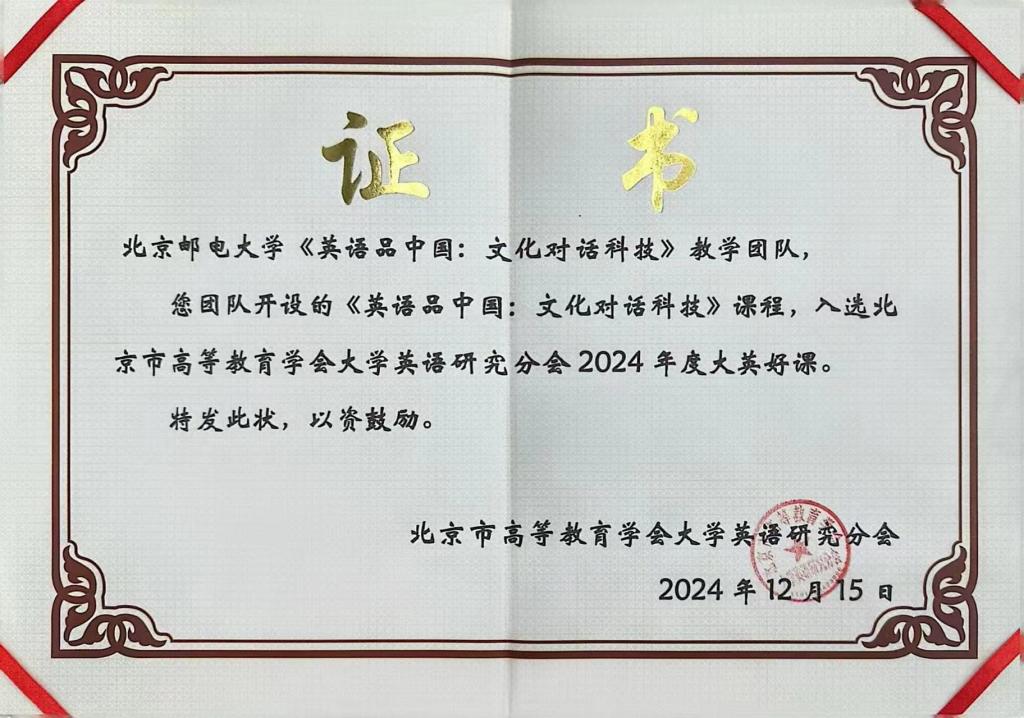 证书
北京邮电大学《英语品中国：文化对话科技》教学团队，
您团队开设的《英语品中国：文化对话科技》课程，入选北
京市高等教育学会大学英语研究分会2024年度大英好课。
特发此状，以资鼓励。
北京市高等教育学会大学英语研究分会
2024年12月15日